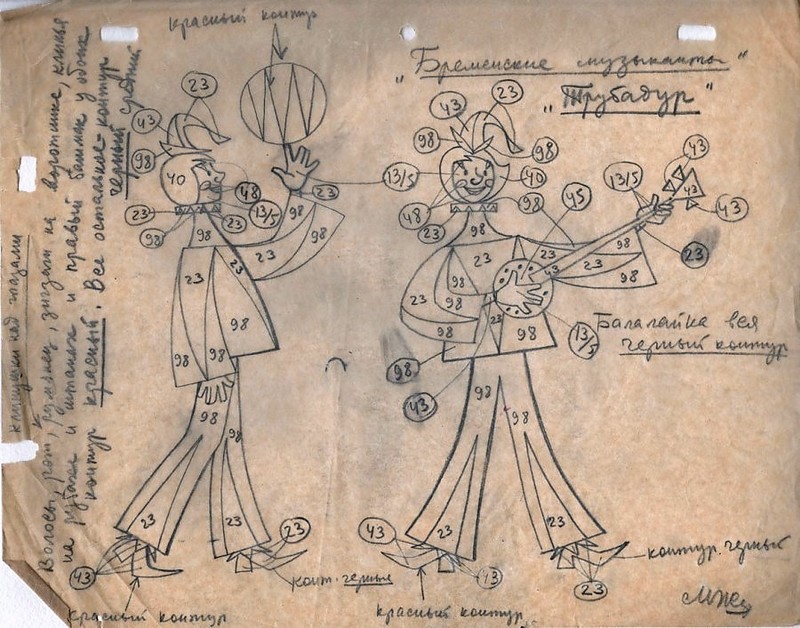 красный контур
„Бременские музыканты"
„Трубадур"
43
23
98
40
48
23
13/5
23
98
23
98
98
23
23
98
23
98
98
98
98
23
23
23
43
красный контур
конт. черный
43
23
98
98
13/5
40
48
98
23
45
13/5
43
43
43
23
98
23
98
98
23
98
23
98
43
23
98
13/5
98
43
Балалайка вся
черный контур
98
98
23
23
43
43
23
красный контур
контур. черный
клинушки над глазами
Волосы, рот, румянец, зигзаги на воротнике, клинья
на рубахе и штанах и правый башмак у обоих
контур красный. Все остальное - контур
черный средний